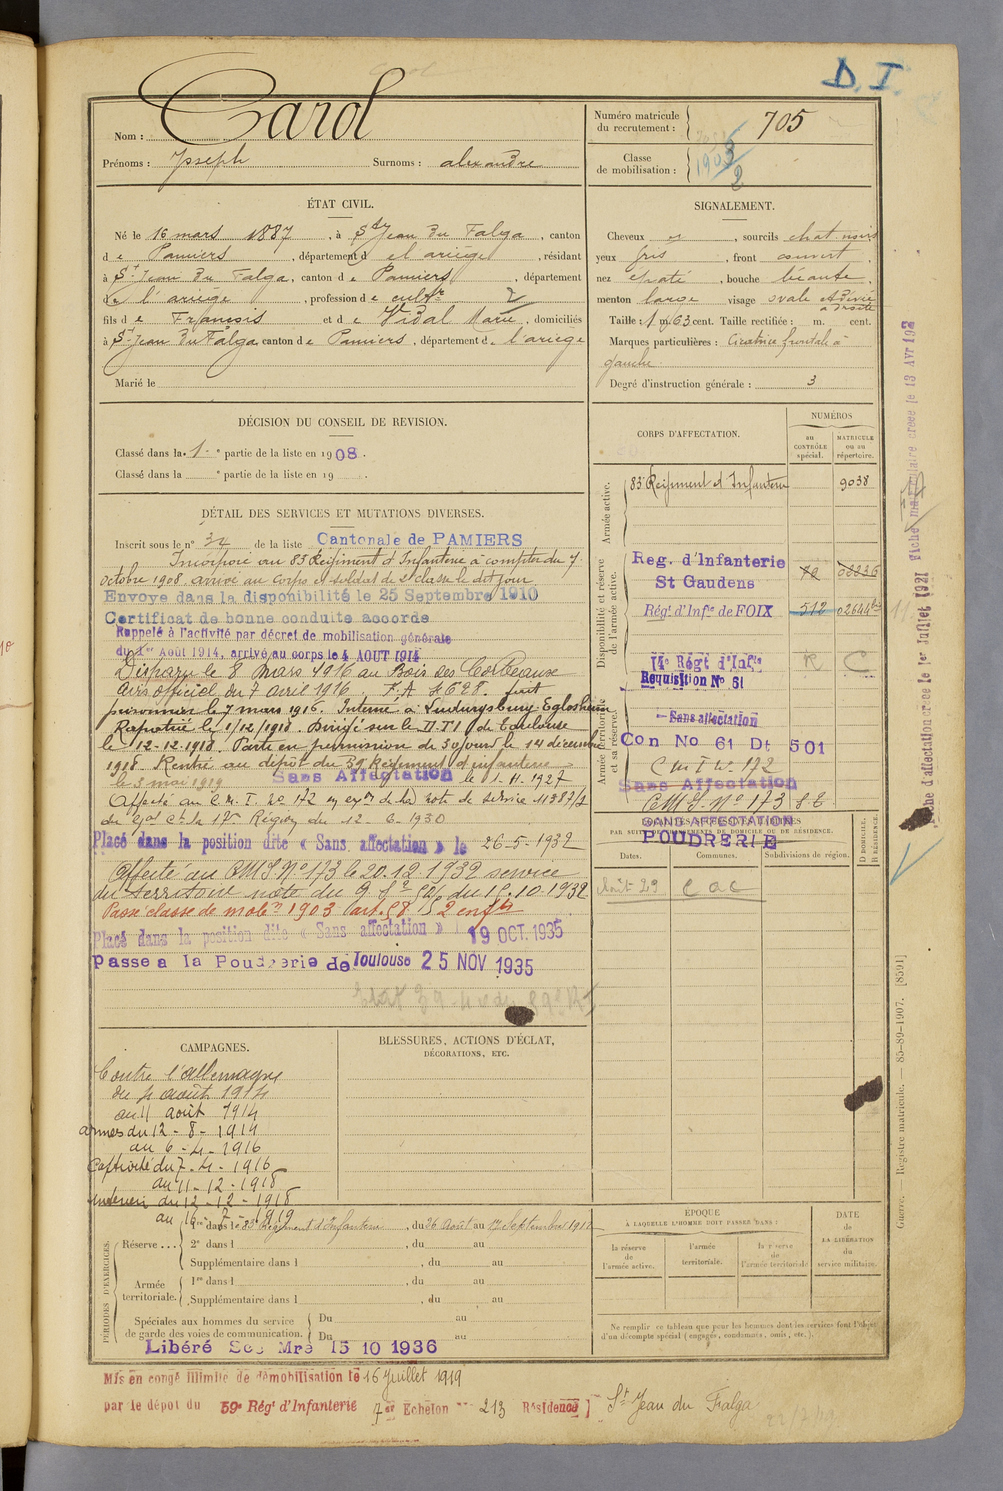 D. I.
Nom : Carol
Prénoms : Joseph Surnoms : alexandre
Numéro matricule du recrutement : 705
Classe de mobilisation : 1903
2
ÉTAT CIVIL.
Né le 16 mars 1887, à St Jean du Falga, canton
de Pamiers, département d el ariège, résidant
à St Jean du Falga, canton de Pamiers, département
de l'ariège, profession de cultr
fils de François et de Vidal Marie, domiciliés
à St Jean du Falga, canton de Pamiers, département de l'ariège
Marié le
SIGNALEMENT.
Cheveux et, sourcils chat. noirs
yeux gris, front couvert,
nez épaté, bouche béante,
menton large visage ovale et dévié à droite
Taille : 1 m 63 cent. Taille rectifiée : m. cent.
Marques particulières : Cicatrice frontale à
gauche.
Degré d'instruction générale : 3
DÉCISION DU CONSEIL DE REVISION.
Classé dans la 1e partie de la liste en 1908.
Classé dans la e partie de la liste en 19 .
DÉTAIL DES SERVICES ET MUTATIONS DIVERSES.
Inscrit sous le n° 34 de la liste Cantonale de PAMIERS
Incorporé au 83 Régiment d'Infanterie à compter du 7
octobre 1908. arrivé au corps et soldat de 2e classe le dit jour
Envoyé dans la disponibilité le 25 Septembre 1910
Certificat de bonne conduite accordé
Rappelé à l'activité par décret de mobilisation générale
du 1er Août 1914, arrivé au corps le 4 AOUT 1914
Disparu le 8 mars 1916 au Bois des Corbeaux
Avis officiel du 7 avril 1916. fait
prisonnier le 7 mars 1916. Interné à Ludwigsburg Eglosheim
Rapatrié le 1/12/1918. Dirigé sur le D.T.I de Toulouse
le 12-12-1918. Parti en permission de 30 jours le 14 décembre
1918. Rentré au dépôt du 59 Régiment d'infanterie
le 3 mai 1919 Sans Affectation le 1-11-1927
Affecté au C.M.I. no 172 note de service 11387/3
du Gal Ct la 17e Région du 12-6-1930
Placé dans la position dite « Sans affectation » le 26-5-1932
Affecté au CMS No 173 le 20.12.1932 service
du territoire note du 15.10.1932
Passé classe de mobon 1903 art. 58 2 enfts
Placé dans la position dite « Sans affectation » 19 OCT. 1935
Passé à la Poudrerie de Toulouse 25 NOV 1935
CORPS D'AFFECTATION.
NUMÉROS
au CONTRÔLE spécial.
MATRICULE ou au répertoire.
Armée active.
83e Régiment d'Infanterie 9038
Disponibilité et réserve de l'armée active.
Reg. d'Infanterie
St Gaudens
Régt d'Infie de FOIX 512
14e Régt d'Infie R C
Réquisition No 61
Armée territoriale et sa réserve.
Sans affectation
Con No 61 Dt 501
C m I no 172
Sans Affectation
CMS. No 173 S.E
SANS AFFECTATION
POUDRERIE
PAR SUITE DE CHANGEMENTS DE DOMICILE OU DE RÉSIDENCE.
Dates. Communes. Subdivisions de région.
D DOMICILE. R RÉSIDENCE.
Août 29 C a C
Fiche d'affectation créée le 1er Juillet 1921
Guerre. — Registre matricule. — 85-89-1907. [8591]
CAMPAGNES.
Contre l'allemagne
du 4 août 1914
au 11 août 1914
armées du 12-8-1914
au 6-4-1916
Captivité du 7-4-1916
au 11-12-1918
Intérieur du 12-12-1918
au 16-7-1919
BLESSURES, ACTIONS D'ÉCLAT,
DÉCORATIONS, ETC.
PÉRIODES D'EXERCICES.
Réserve ... 1re dans le 83e Régiment d'Infanterie, du 26 Août au 17 Septembre 1912
2e dans l , du au
Supplémentaire dans l , du au
Armée territoriale. 1re dans l , du au
Supplémentaire dans l , du au
Spéciales aux hommes du service de garde des voies de communication. Du au
Du au
Libéré Ser Mre 15 10 1936
ÉPOQUE
À LAQUELLE L'HOMME DOIT PASSER DANS :
la réserve de l'armée active.
l'armée territoriale.
la réserve de l'armée territoriale
DATE de LA LIBÉRATION du service militaire.
Ne remplir ce tableau que pour les hommes dont les services font l'objet
d'un décompte spécial (engagés, condamnés, omis, etc.).
Mis en congé illimité de démobilisation le 16 juillet 1919
par le dépôt du 59e Régt d'Infanterie 7er Echelon no 213 Résidence St Jean du Falga